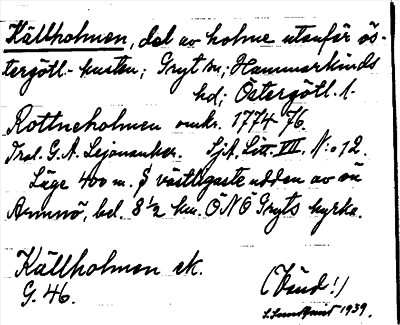 Källholmen, del av holme utanför ös-
tergötl.-kusten; Gryt sn; Hammarkinds
hd; Östergötl. l.
Rottneholmen omkr. 1774-76.
Trol. G. A. Lejonanker. Sjk. Litt. VII. N:o 12.
Läge 400 m. S västligaste udden av ön
Armnö, bel. 8 1/2 km. ÖNÖ Gryts kyrka.
Källholmen ek.
G. 46.
(Vänd!)
S. Lundqvist 1939.